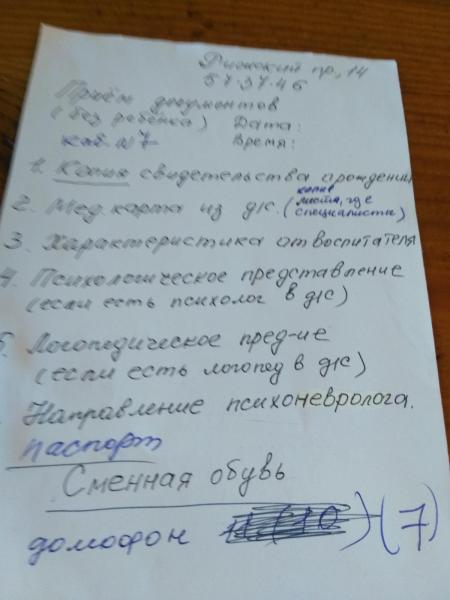 Рижский пр, 14
57-37-46
Приём документов
(без ребёнка) Дата:
каб. №7 Время:
1. Копия свидетельства о рождении
2. Мед. карта из д/с. (копия листа, где специалисты)
3. Характеристика от воспитателя
4. Психологическое представление
(если есть психолог в д/с)
5. Логопедическое пред-ие
(если есть логопед в д/с)
Направление психоневролога.
паспорт
Сменная обувь
домофон (7)